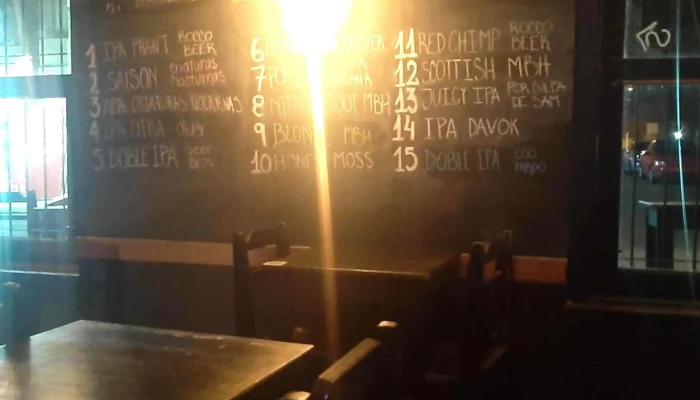 1 IPA PHANT ROCCO BEER
2 SAISON Criaturas Nocturnas
3 APA CRIATURAS NOCTURNAS
4 IPA OTRA
5 DOBLE IPA BEER BROS
6
7
8 NITRO STOUT MBH
9 BLONDE MBH
10 HONEY MOSS
11 RED CHIMP ROCCO BEER
12 SCOTTISH MBH
13 JUICY IPA POR CULPA DE SAM
14 IPA DAVOK
15 DOBLE IPA OSO PARDO